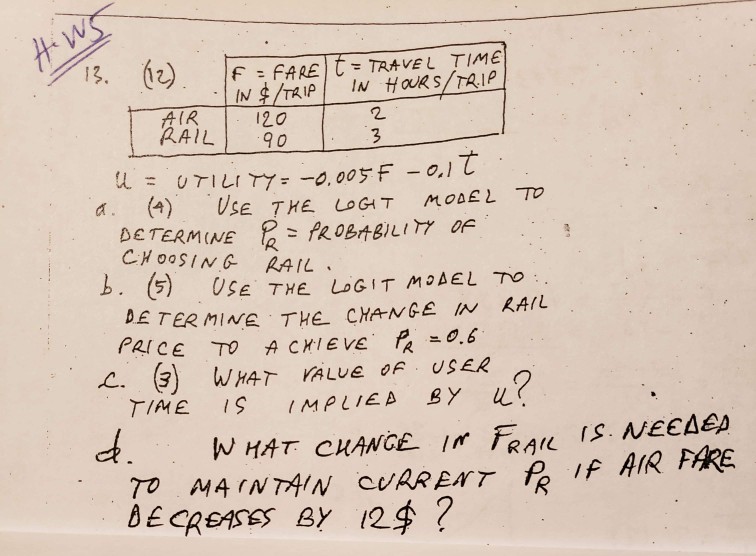 H.W5
13. (12) F = FARE IN $/TRIP t = TRAVEL TIME IN HOURS/TRIP
AIR 120 2
RAIL 90 3
U = UTILITY = -0.005F - 0.1t
a. (4) USE THE LOGIT MODEL TO
DETERMINE P_R = PROBABILITY OF
CHOOSING RAIL.
b. (5) USE THE LOGIT MODEL TO
DETERMINE THE CHANGE IN RAIL
PRICE TO ACHIEVE P_R = 0.6
c. (3) WHAT VALUE OF USER
TIME IS IMPLIED BY U?
d. WHAT CHANGE IN F_RAIL IS NEEDED
TO MAINTAIN CURRENT P_R IF AIR FARE
DECREASES BY 12$ ?